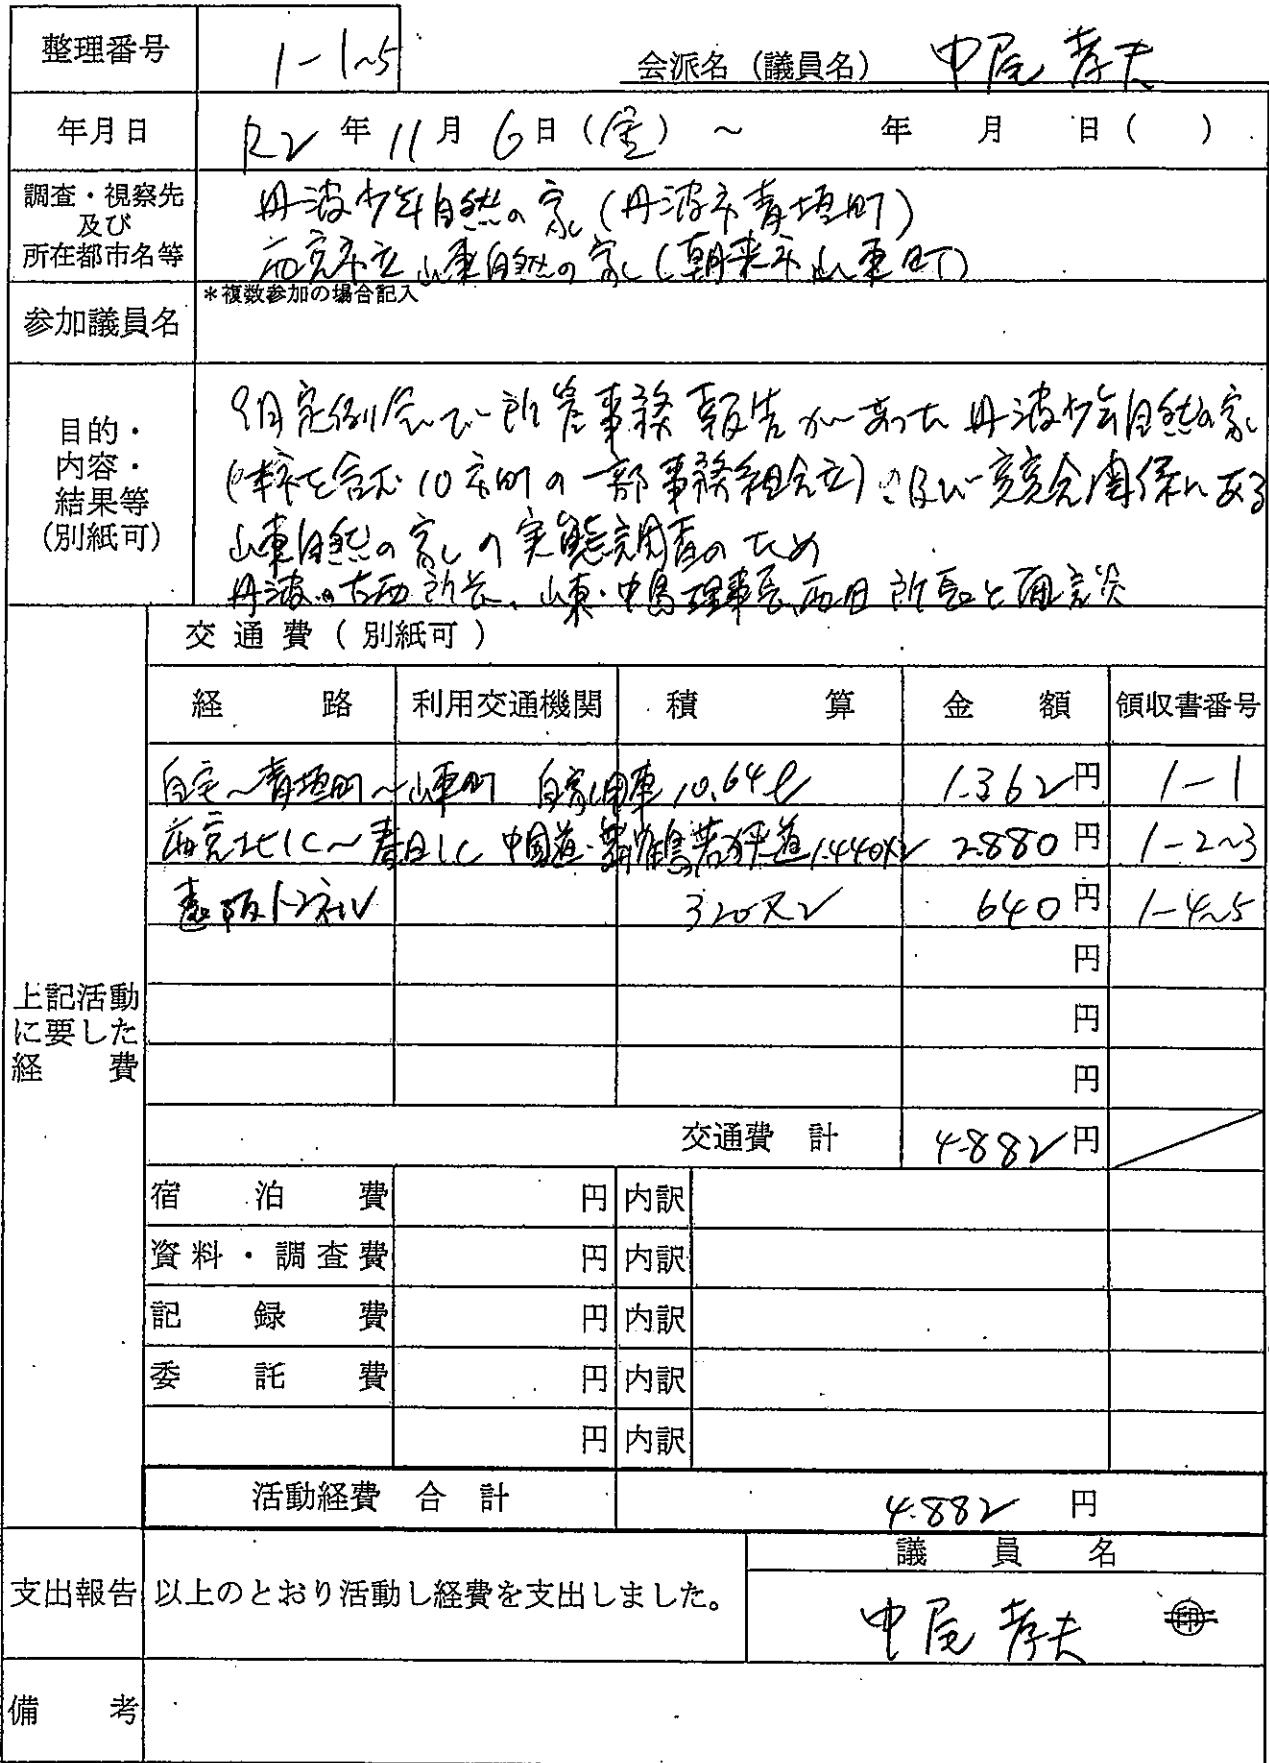 整理番号 1-1~5 会派名（議員名） 中尾孝夫
年月日 R2年11月6日（金） ～ 年 月 日（ ）
調査・視察先
及び
所在都市名等
丹波少年自然の家（丹波市青垣町）
西宮市立山東自然の家（朝来市山東町）
参加議員名 ＊複数参加の場合記入
目的・
内容・
結果等
（別紙可）
9月定例会で所管事務報告があった丹波少年自然の家
（本市を含む10市町の一部事務組合立）及び競合関係にある
山東自然の家の実態調査のため
丹波の 所長、山東・中島理事長、西田所長と面談
上記活動
に要した
経 費
交通費（別紙可）
経 路 利用交通機関 積 算 金 額 領収書番号
自宅～青垣町～山東町 自家用車 10.64ℓ 1.362円 1-1
西宮北IC～春日IC 中国道・舞鶴若狭道 1.440×2 2.880円 1-2~3
遠阪トンネル 320×2 640円 1-4~5
円
円
円
交通費 計 4.882円
宿 泊 費 円 内訳
資料・調査費 円 内訳
記 録 費 円 内訳
委 託 費 円 内訳
円 内訳
活動経費 合 計 4.882 円
支出報告 以上のとおり活動し経費を支出しました。
議 員 名
中尾孝夫 印
備 考